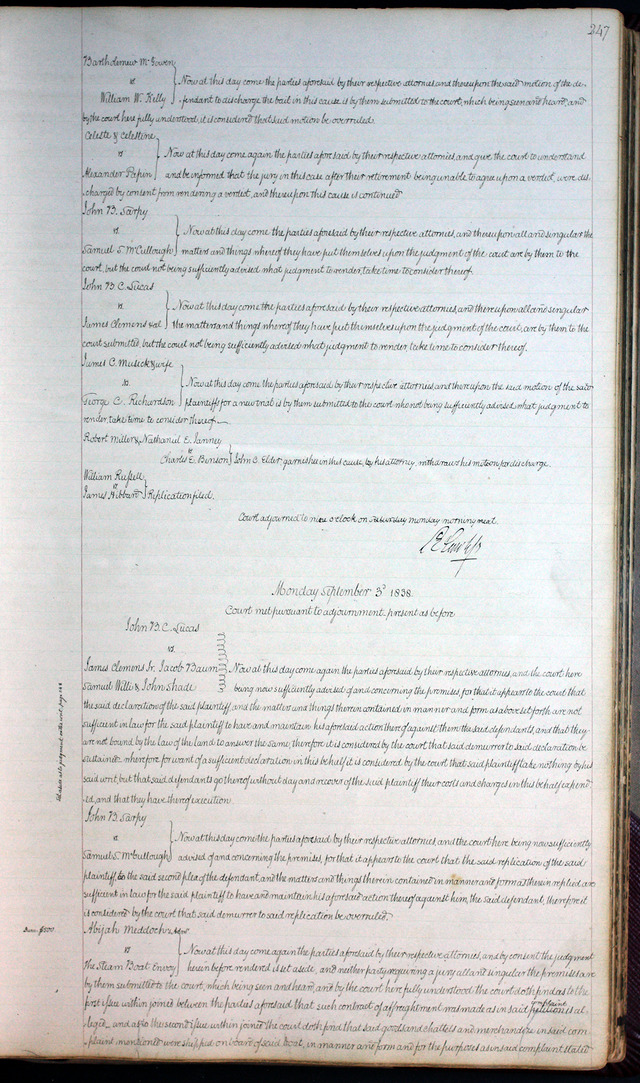 247
Bartholomew McGowen
vs } Now at this day come the parties aforesaid by their respective attornies and thereupon the said motion of the de-
William W. Kelly } fendant to discharge the bail in this cause is by them submitted to the court, which being seen and heard, and
by the court here fully understood, it is considered that said motion be overruled.
Celeste & Celestine
vs } Now at this day come again the parties aforesaid by their respective attornies and give the court to understand
Alexander Papin } and be informed that the jury in this case after their retirement being unable to agree upon a verdict, were dis
charged by consent from rendering a verdict, and thereupon this cause is continued
John B. Sarpy
vs } Now at this day come the parties aforesaid by their respective attornies, and thereupon all and singular the
Samuel S. McCullough } matters and things whereof they have put themselves upon the judgment of the court are by them to the
court, but the court not being sufficiently advised what judgment to render, take time to consider thereof.
John B. C. Lucas
vs. } Now at this day come the parties aforesaid by their respective attornies, and thereupon all and singular
James Clemens et al } the matters and things whereof they have put themselves upon the judgment of the court, are by them to the
court submitted but the court not being sufficiently advised what judgment to render, take time to consider thereof.
James C. Musick & wife
vs. } Now at this day come the parties aforesaid by their respective attornies and thereupon the said motion of the said
George C. Richardson } plaintiffs for a new trial is by them submitted to the court who not being sufficiently advised what judgment to
render, take time to consider thereof
Robert Miller & Nathaniel E. Janney
vs
Charles E. Benson } John C. Elder garnishee in this cause, by his attorney, withdraws his motion for discharge.
William Russell
vs
James Hibbard } Replication filed.
Court adjourned to nine o'clock on Saturday monday morning next.
Monday September 3d 1838.
Court met pursuant to adjournment present as before
John B. C. Lucas
vs.
James Clemens Jr. Jacob Baum } Now at this day come again the parties aforesaid by their respective attornies, and the court here
Samuel Willi & John Shade } being now sufficiently advised of and concerning the premises, for that it appears to the court that
the said declaration of the said plaintiff, and the matters and things therein contained in manner and form as above set forth are not
sufficient in law for the said plaintiff to have and maintain his aforesaid action thereof against them the said defendants, and that they
are not bound by the law of the land to answer the same, therefore it is considered by the court that said demurrer to said declaration be
sustained. wherefore for want of a sufficient declaration in this behalf it is considered by the court that said plaintiff take nothing by his
said writ, but that said defendants go thereof without day and recover of the said plaintiff their costs and charges in this behalf expend
ed, and that they have thereof execution.
John B. Sarpy
vs } Now at this day come the parties aforesaid by their respective attornies, and the court here being now sufficiently
Samuel S. McCullough } advised of and concerning the premises, for that it appears to the court that the said replication of the said
plaintiff, to the said second plea of the defendant, and the matters and things therein contained in manner and form as therein replied, are
sufficient in law for the said plaintiff to have and maintain his aforesaid action thereof against him, the said defendant, therefore it
is considered by the court that said demurrer to said replication be overruled.
Abijah Meddoch
vs } Now at this day come again the parties aforesaid by their respective attornies, and by consent the judgment
The Steam Boat Envoy } herein before rendered is set aside, and neither party requiring a jury all and singular the premises are
by them submitted to the court, which being seen and heard, and by the court here fully understood the court doth find as to the
first issue within joined between the parties aforesaid that such contract of affreightment was made as in said petition complaint is al
leged and as to the second issue within joined the court doth find that said goods and chattels and merchandize in said com
plaint mentioned were shipped on board of said boat, in manner and form and for the purposes as in said complaint stated